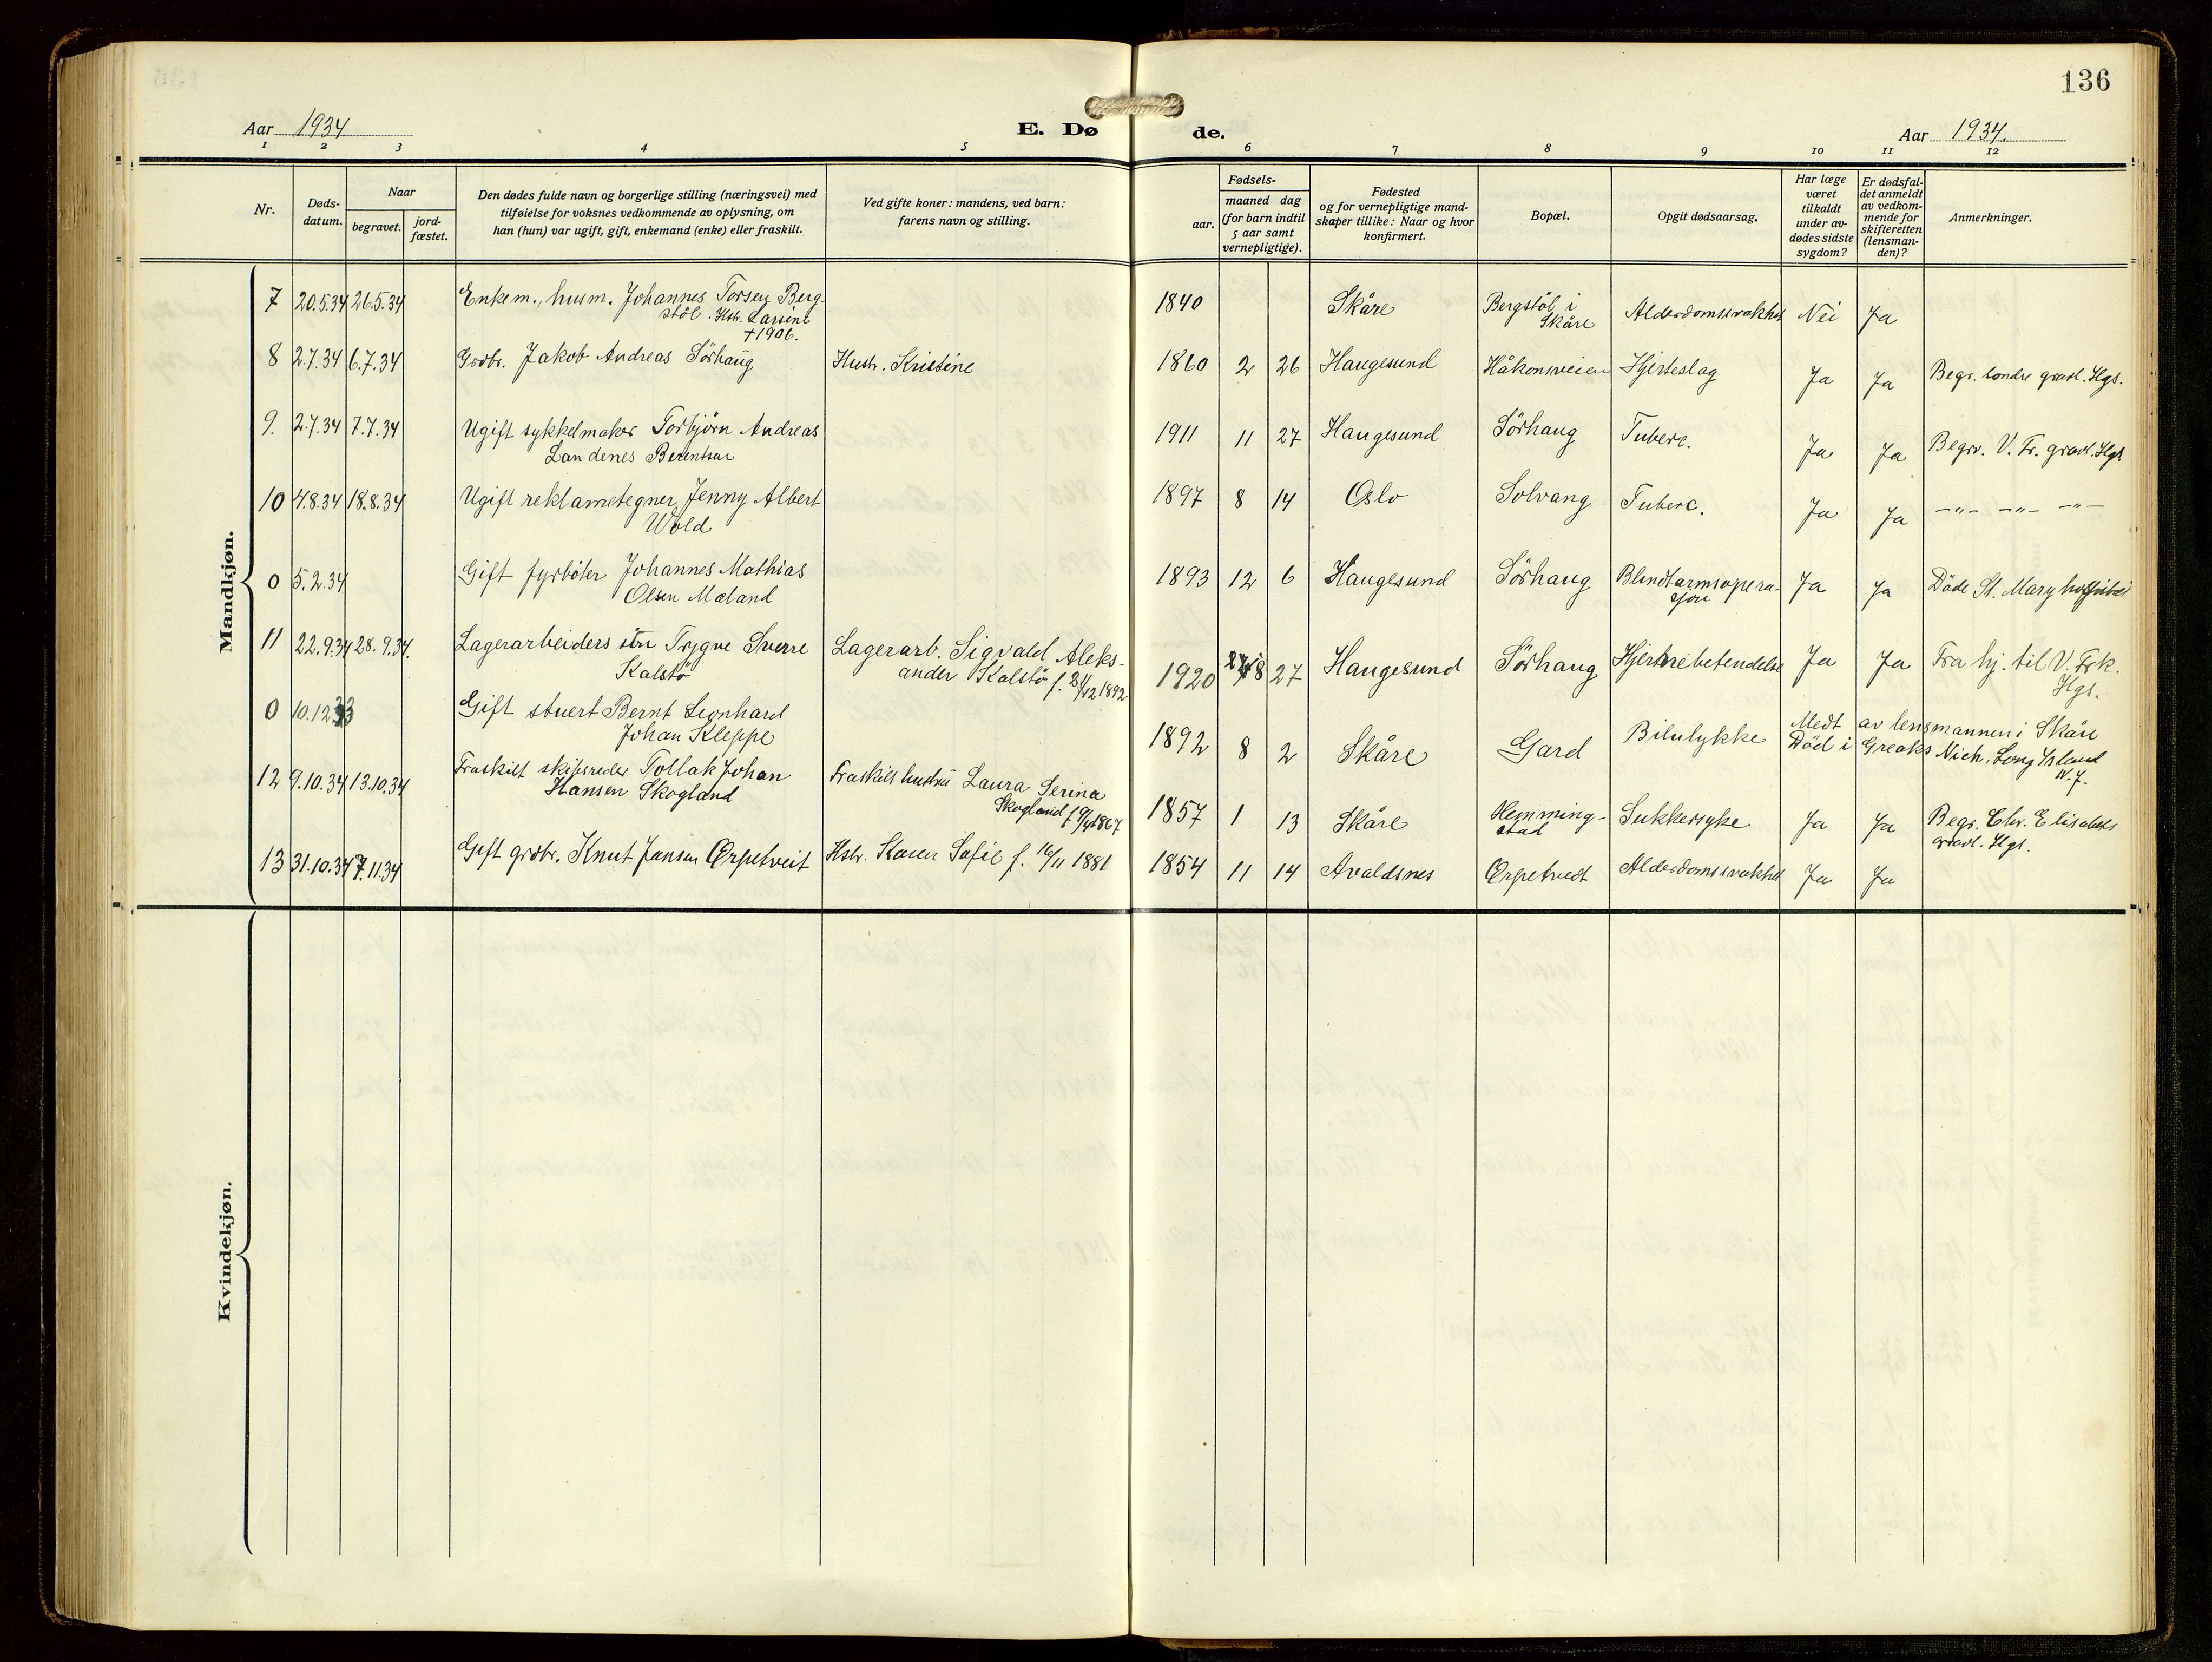 136
Aar 1934
E. Dø de.
Aar 1934.
1 2 3 4 5 6 7 8 9 10 11 12
Nr.
Døds-
datum.
Naar
begravet.
jord-
fæstet.
Den dødes fulde navn og borgerlige stilling (næringsvei) med
tilføielse for voksnes vedkommende av oplysning, om
han (hun) var ugift, gift, enkemand (enke) eller fraskilt.
Ved gifte koner: mandens, ved barn:
farens navn og stilling.
Fødsels-
aar.
maaned dag
(for barn indtil
5 aar samt
vernepligtige).
Fødested
og for vernepligtige mand-
skaper tillike: Naar og hvor
konfirmert.
Bopæl.
Opgit dødsaarsag.
Har læge
været
tilkaldt
under av-
dødes sidste
sygdom?
Er dødsfal-
det anmeldt
av vedkom-
mende for
skifteretten
(lensman-
den)?
Anmerkninger.
Mandkjøn.
7 20.5.34 26.5.34 Enkem., husm. Johannes Torsen Berg- 1840 Skåre Bergstöl i Alderdomssvakhet Nei Ja
stöl. Hstr. Larsine Skåre
†1906.
8 2.7.34 6.7.34 Grdbr. Jakob Andreas Sörhaug Hustr. Kristine 1860 2 26 Haugesund Håkonsveien Hjerteslag Ja Ja Begr. söndre gravl. Hgs.
9. 2.7.34 7.7.34 Ugift sykkelmaker Torbjörn Andreas 1911 11 27 Haugesund Sörhaug Tuberc. Ja Ja Begr. V. Fr. gravl. Hgs.
Landenes Berentsen
10 4.8.34 18.8.34 Ugift reklametegner Jenny Albert 1897 8 14 Oslo Solvang Tuberc. Ja Ja —"— —"— —"—
Wold
0 5.2.34 Gift fyrböter Johannes Mathias 1893 12 6 Haugesund Sörhaug Blindtarmsopera- Ja Ja Döde St. Mary
Olsen Mæland sjon
11 22.9.34 28.9.34. Lagerarbeiders sön Trygve Sverre Lagerarb. Sigvald Aleks- 1920 8 27 Haugesund Sörhaug Hjernebetendelse Ja Ja Fra hj. til V. Frk.
Kalstö ander Kalstö f. 21/12 1892 Hgs.
0 10.12.33 Gift stuert Bernt Leonhard 1892 8 2 Skåre Gard Bilulykke Medt av lensmannen i Skåre
Johan Kleppe Död i Greaks Nich, Long Island
N.J.
12 9.10.34 13.10.34 Fraskilt skipsreder Tollak Johan Fraskilt hustru Laura Serina 1857 1 13 Skåre Hemming- Sukkersyke Ja Ja Begr. Chr. Elisabeths
Hansen Skogland Skogland stad gravl. Hgs.
13 31.10.34 7.11.34 Gift grdbr. Knut Jansen Ørpetveit Hstr. Karen Sofie f. 16/11 1881 1854 11 14 Avaldsnes Ørpetvedt Alderdomssvakhet Ja Ja
Kvindekjøn.